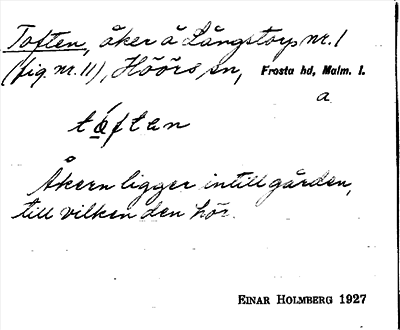 Toften, åker å Långstorp nr. 1
(fig. nr. 11), Höörs sn, Frosta hd, Malm. l.
a.
tåftan
Åkern ligger intill gården,
till vilken den hör.
EINAR HOLMBERG 1927